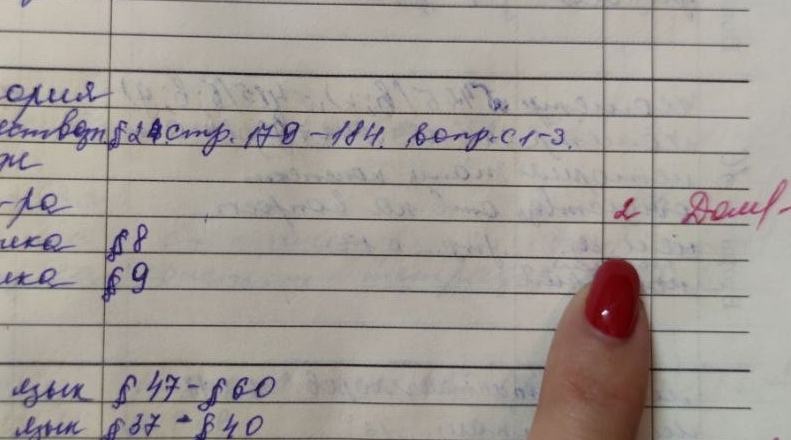 ория
ествозн §24 стр. 179-184. вопр. с 1-3.
-ра 2
ика §8
ика §9
язык §47-§60
язык §37-§40